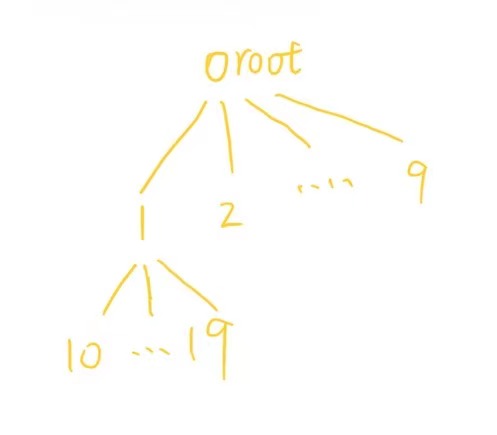 0root
1 2 .... 9
10 ... 19